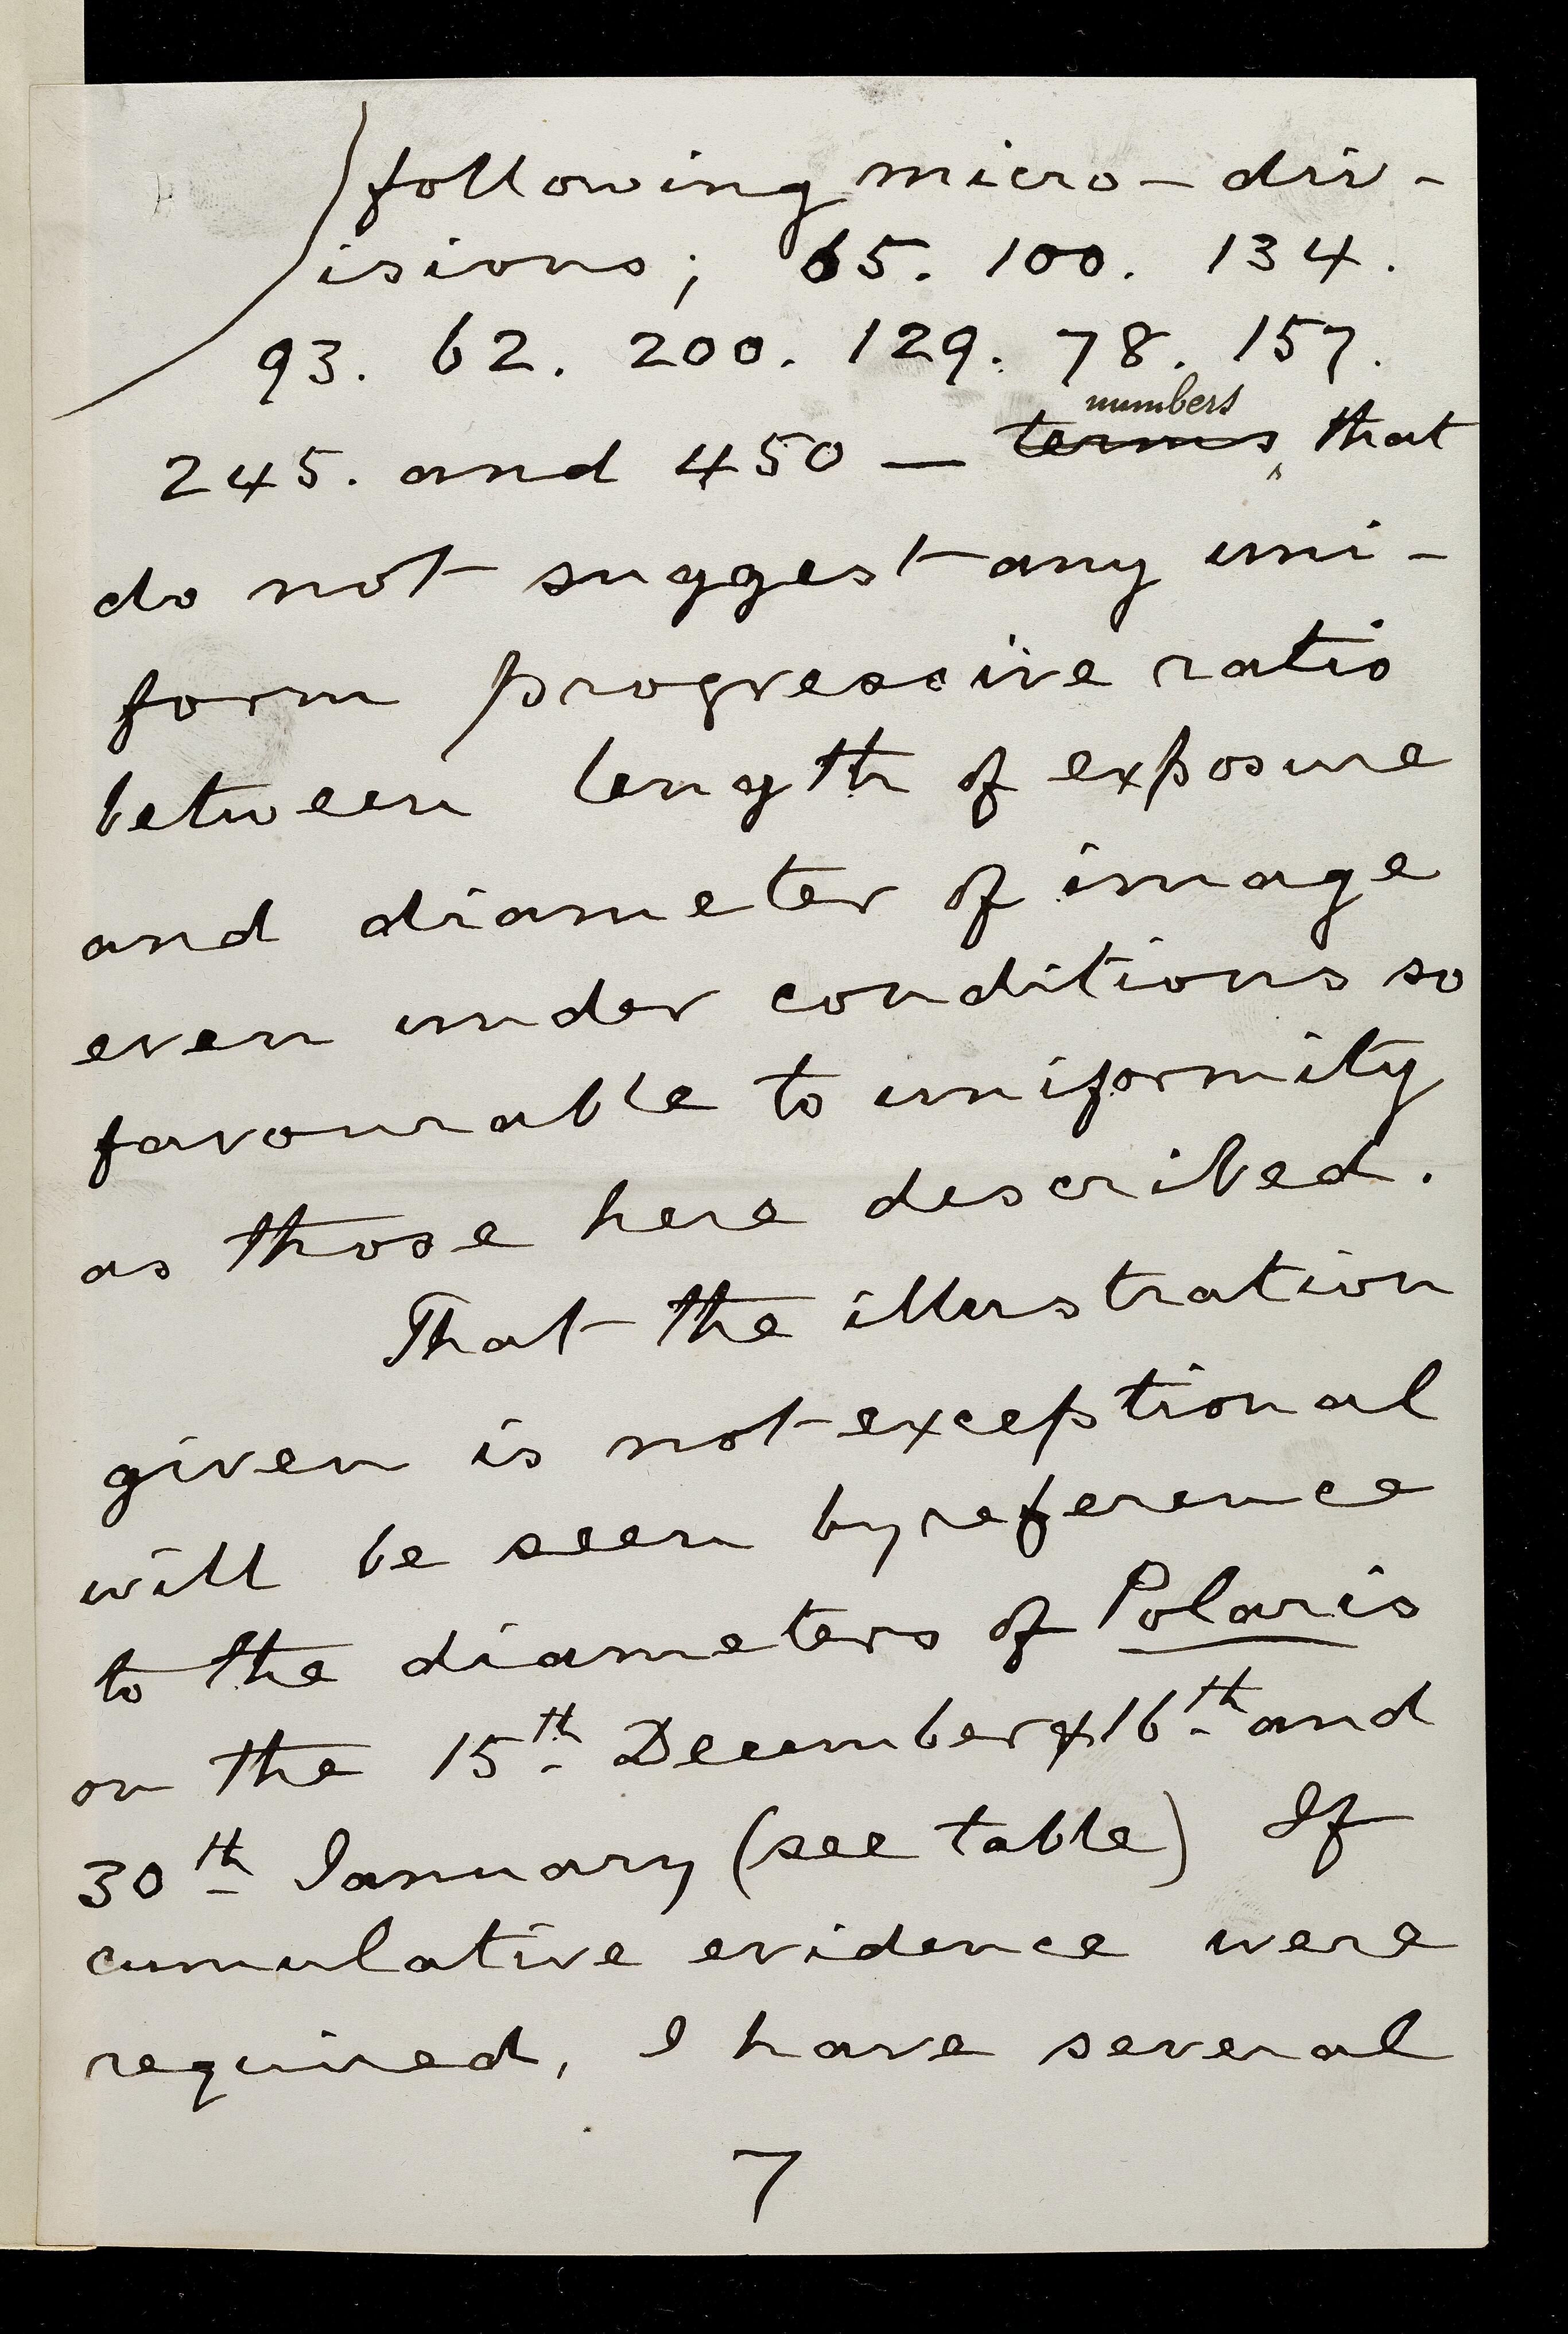 following micro-div-
isions; 65. 100. 134.
93. 62. 200. 129. 78. 157.
numbers
245. and 450 — terms that
do not suggest any uni-
form progressive ratio
between length of exposure
and diameter of image
even under conditions so
favourable to uniformity
as those here described.
That the illustration
given is not exceptional
will be seen by reference
to the diameters of Polaris
on the 15th December & 16th and
30th January (see table) If
cumulative evidence were
required, I have several
7